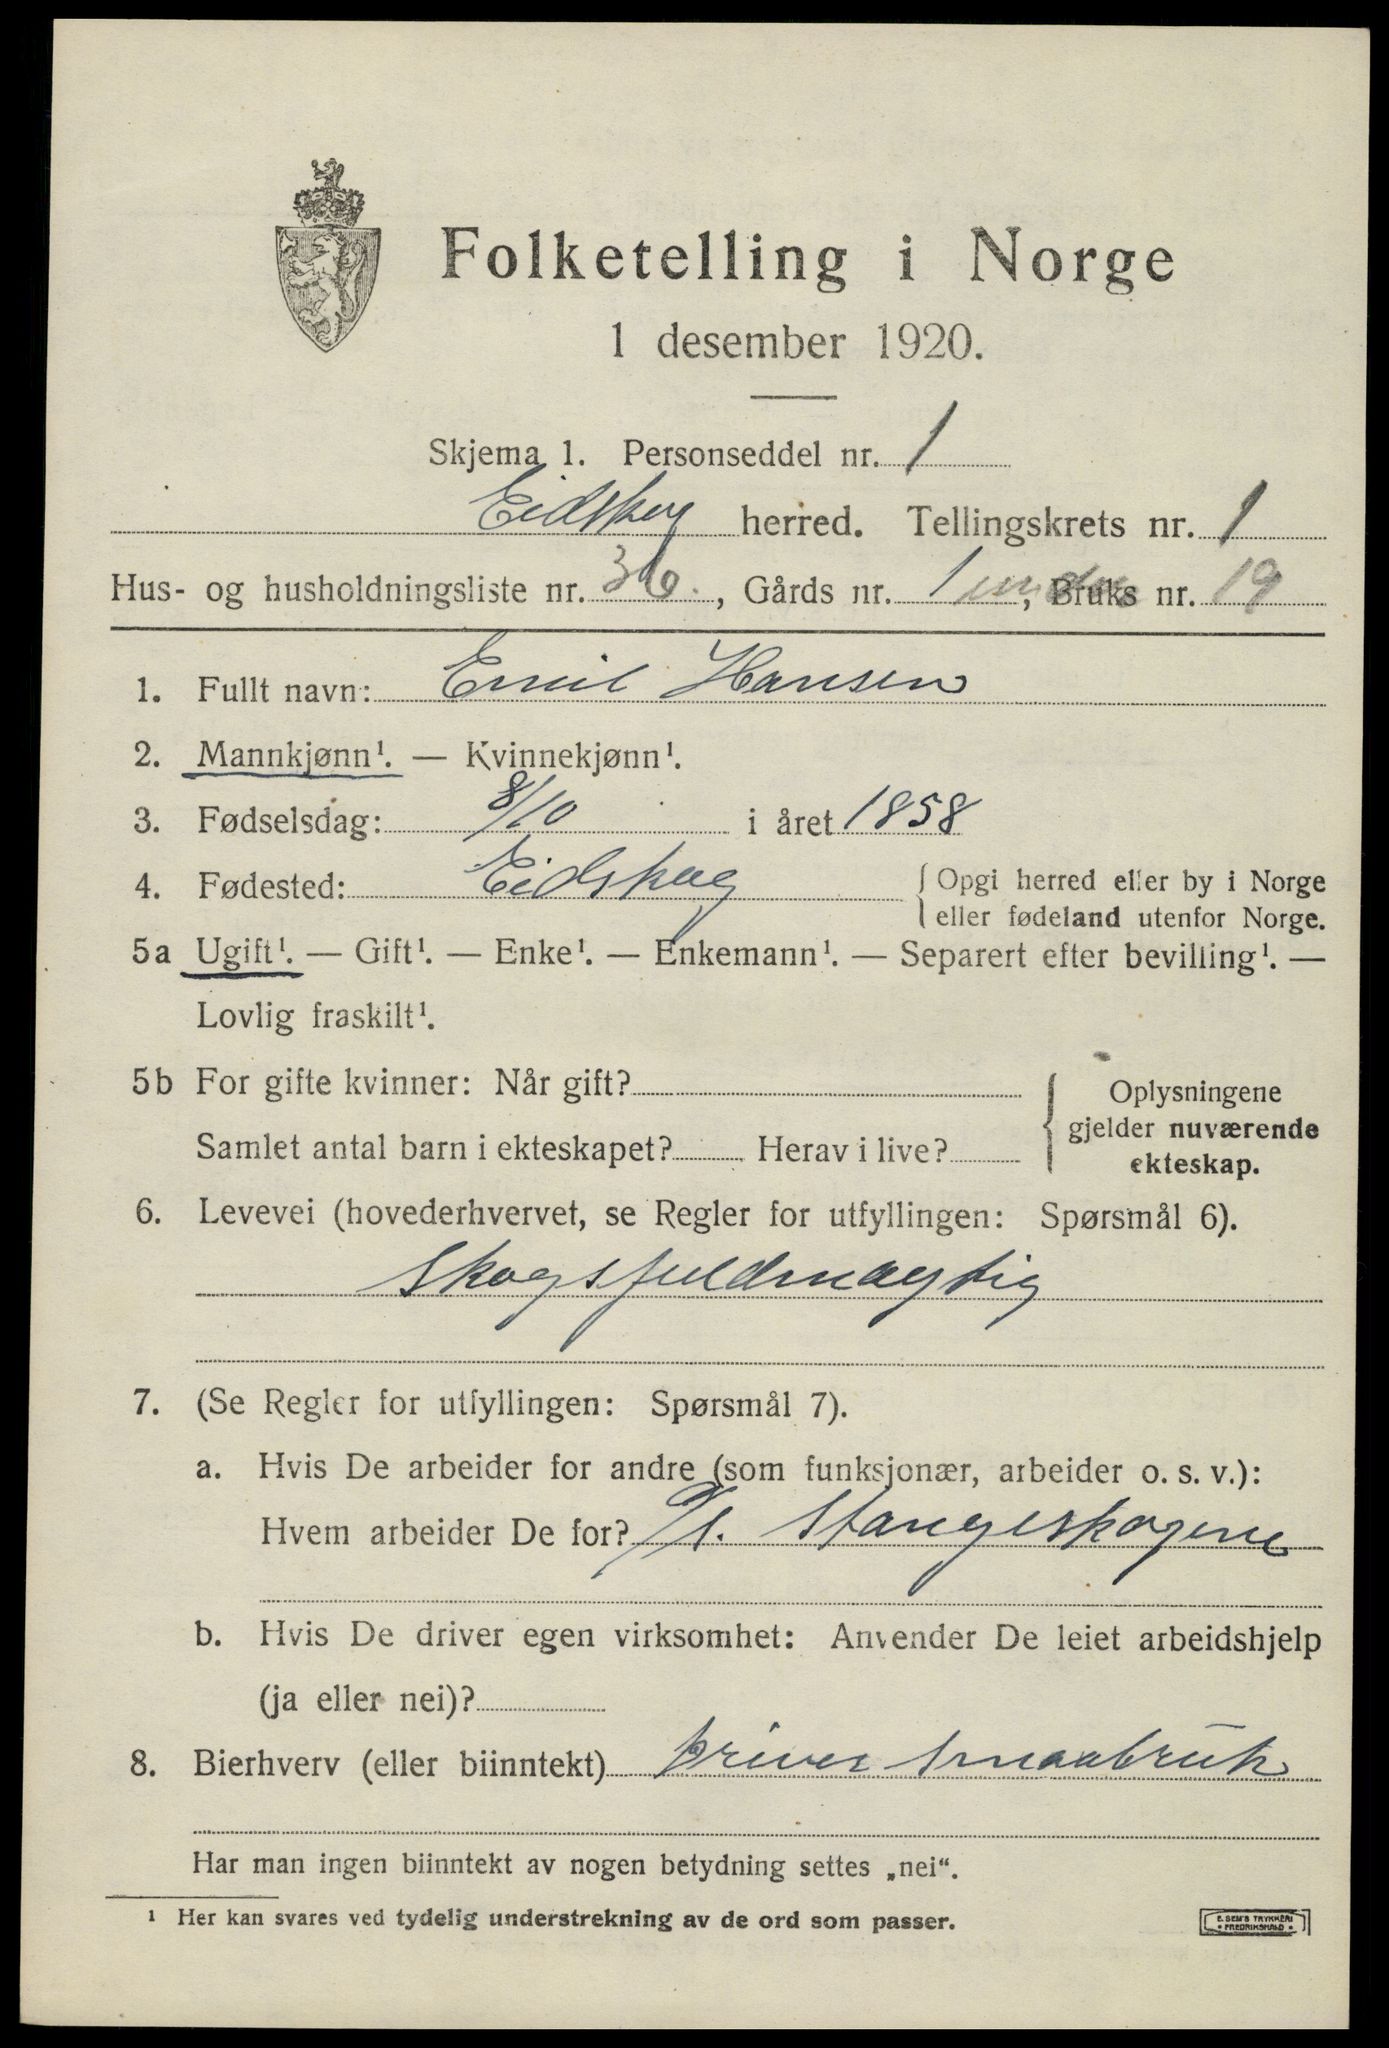 Folketelling i Norge
1 desember 1920.
Skjema 1. Personseddel nr. 1
Eidskog herred. Tellingskrets nr. 1
Hus- og husholdningsliste nr. 36., Gårds nr. 1 under, Bruks nr. 19
1. Fullt navn: Emil Hansen
2. Mannkjønn¹. — Kvinnekjønn¹.
3. Fødselsdag: 8/10 i året 1858
4. Fødested: Eidskog { Opgi herred eller by i Norge
eller fødeland utenfor Norge.
5a Ugift¹. — Gift¹. — Enke¹. — Enkemann¹. — Separert efter bevilling¹. —
Lovlig fraskilt¹.
5b For gifte kvinner: Når gift?
Samlet antal barn i ekteskapet? Herav i live?
{ Oplysningene
gjelder nuværende
ekteskap.
6. Levevei (hovederhvervet, se Regler for utfyllingen: Spørsmål 6).
Skogsfuldmagtig
7. (Se Regler for utfyllingen: Spørsmål 7).
a. Hvis De arbeider for andre (som funksjonær, arbeider o. s. v.):
Hvem arbeider De for? A/S. Stangeskogene
b. Hvis De driver egen virksomhet: Anvender De leiet arbeidshjelp
(ja eller nei)?
8. Bierhverv (eller biinntekt) driver smaabruk
Har man ingen biinntekt av nogen betydning settes „nei“.
¹ Her kan svares ved tydelig understrekning av de ord som passer.
E. SEM'S TRYKKERI
• FREDRIKSHALD •